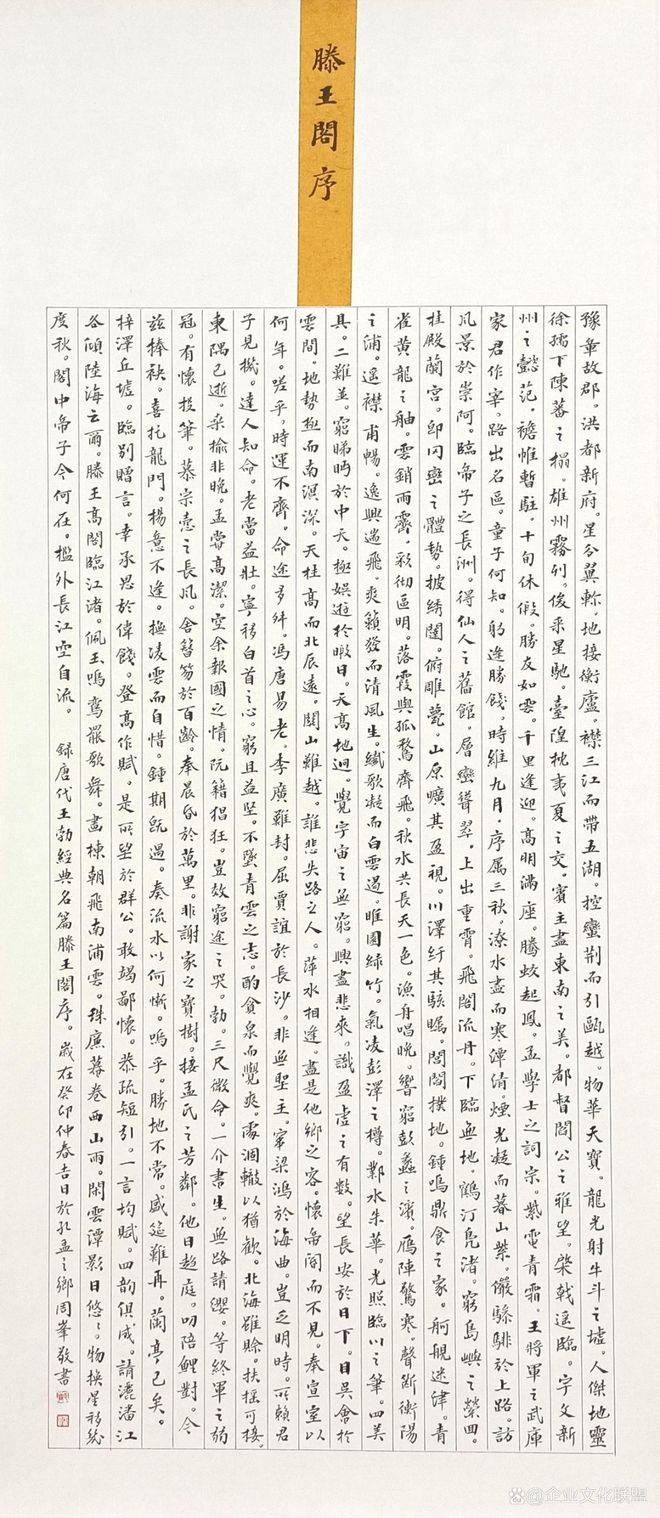 滕王閣序
豫章故郡。洪都新府。星分翼軫。地接衡廬。襟三江而帶五湖。控蠻荆而引甌越。物華天寶。龍光射牛斗之墟。人傑地靈
徐孺下陳蕃之榻。雄州霧列。俊采星馳。臺隍枕夷夏之交。賓主盡東南之美。都督閻公之雅望。棨戟遥臨。宇文新
州之懿范。襜帷暫駐。十旬休假。勝友如雲。千里逢迎。高明滿座。騰蛟起鳳。孟學士之詞宗。紫電青霜。王將軍之武庫
家君作宰。路出名區。童子何知。躬逢勝餞。時維九月。序属三秋。潦水盡而寒潭清。煙光凝而暮山紫。儼驂騑於上路。訪
風景於崇阿。臨帝子之長洲。得仙人之舊館。層巒聳翠。上出重霄。飛閣流丹。下臨無地。鶴汀凫渚。窮島嶼之縈回。
桂殿蘭宫。即岡巒之體勢。披綉闥。俯雕甍。山原曠其盈視。川澤紆其駭矚。閭閻撲地。鍾鳴鼎食之家。舸艦迷津。青
雀黄龍之舳。雲銷雨霽。彩徹區明。落霞與孤鶩齊飛。秋水共長天一色。漁舟唱晚。響窮彭蠡之濱。雁陣驚寒。聲斷衡陽
之浦。遥襟甫暢。逸興遄飛。爽籟發而清風生。纖歌凝而白雲遏。睢園緑竹。氣凌彭澤之樽。鄴水朱華。光照臨川之筆。四美
具。二難並。窮睇眄於中天。極娱遊於暇日。天高地迥。覺宇宙之無窮。興盡悲來。識盈虚之有數。望長安於日下。目吴會於
雲間。地勢極而南溟深。天柱高而北辰遠。關山難越。誰悲失路之人。萍水相逢。盡是他鄉之客。懷帝閽而不見。奉宣室以
何年。嗟乎。時運不齊。命途多舛。馮唐易老。李廣難封。屈賈誼於長沙。非無聖主。竄梁鴻於海曲。豈乏明時。所賴君
子見機。達人知命。老當益壯。寧移白首之心。窮且益堅。不墜青雲之志。酌貪泉而覺爽。處涸轍以猶歡。北海雖賒。扶摇可接。
東隅已逝。桑榆非晚。孟嘗高潔。空余報國之情。阮籍猖狂。豈效窮途之哭。勃。三尺微命。一介書生。無路請纓。等終軍之弱
冠。有懷投筆。慕宗慤之長風。舍簪笏於百齡。奉晨昏於萬里。非謝家之寶樹。接孟氏之芳鄰。他日趨庭。叨陪鯉對。今
兹捧袂。喜托龍門。楊意不逢。撫凌雲而自惜。鍾期既遇。奏流水以何慚。嗚乎。勝地不常。盛筵難再。蘭亭已矣。
梓澤丘墟。臨别贈言。幸承恩於偉餞。登高作賦。是所望於群公。敢竭鄙懷。恭疏短引。一言均賦。四韵俱成。請灑潘江
各傾陸海云爾。滕王高閣臨江渚。佩玉鳴鸞罷歌舞。畫棟朝飛南浦雲。珠簾暮卷西山雨。閑雲潭影日悠〻。物换星移幾
度秋。閣中帝子今何在。檻外長江空自流。 録唐代王勃經典名篇滕王閣序 歲在癸卯仲春吉日於孔孟之鄉周峯敬書
企业文化联盟